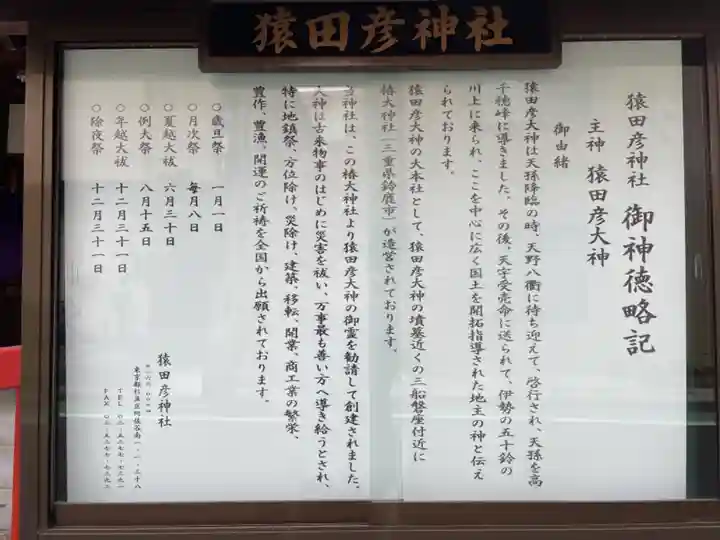 猿田彦神社
猿田彦神社 御神徳略記
主神 猿田彦大神
御由緒
猿田彦大神は天孫降臨の時、天野八衢に待ち迎えて、啓行され、天孫を高
千穂峰に導きました。その後、天宇受売命に送られて、伊勢の五十鈴の
川上に来られ、ここを中心に広く国土を開拓指導された地主の神と伝え
られております。
猿田彦大神の大本社として、猿田彦大神の墳墓近くの三船磐座付近に
椿大神社(三重県鈴鹿市)が造営されております。
当神社は、この椿大神社より猿田彦大神の御霊を勧請して創建されました。
大神は古来物事のはじめに災害を祓い、万事最も善い方へ導き給うとされ、
特に地鎮祭、方位除け、災除け、建築、移転、開業、商工業の繁栄、
豊作、豊漁、開運のご祈祷を全国から出願されております。
○歳旦祭 一月一日
○月次祭 毎月八日
○夏越大祓 六月三十日
○例大祭 八月十五日
○年越大祓 十二月三十一日
○除夜祭 十二月三十一日
猿田彦神社
東京都杉並区阿佐谷南一-一-三十八
TEL
FAX